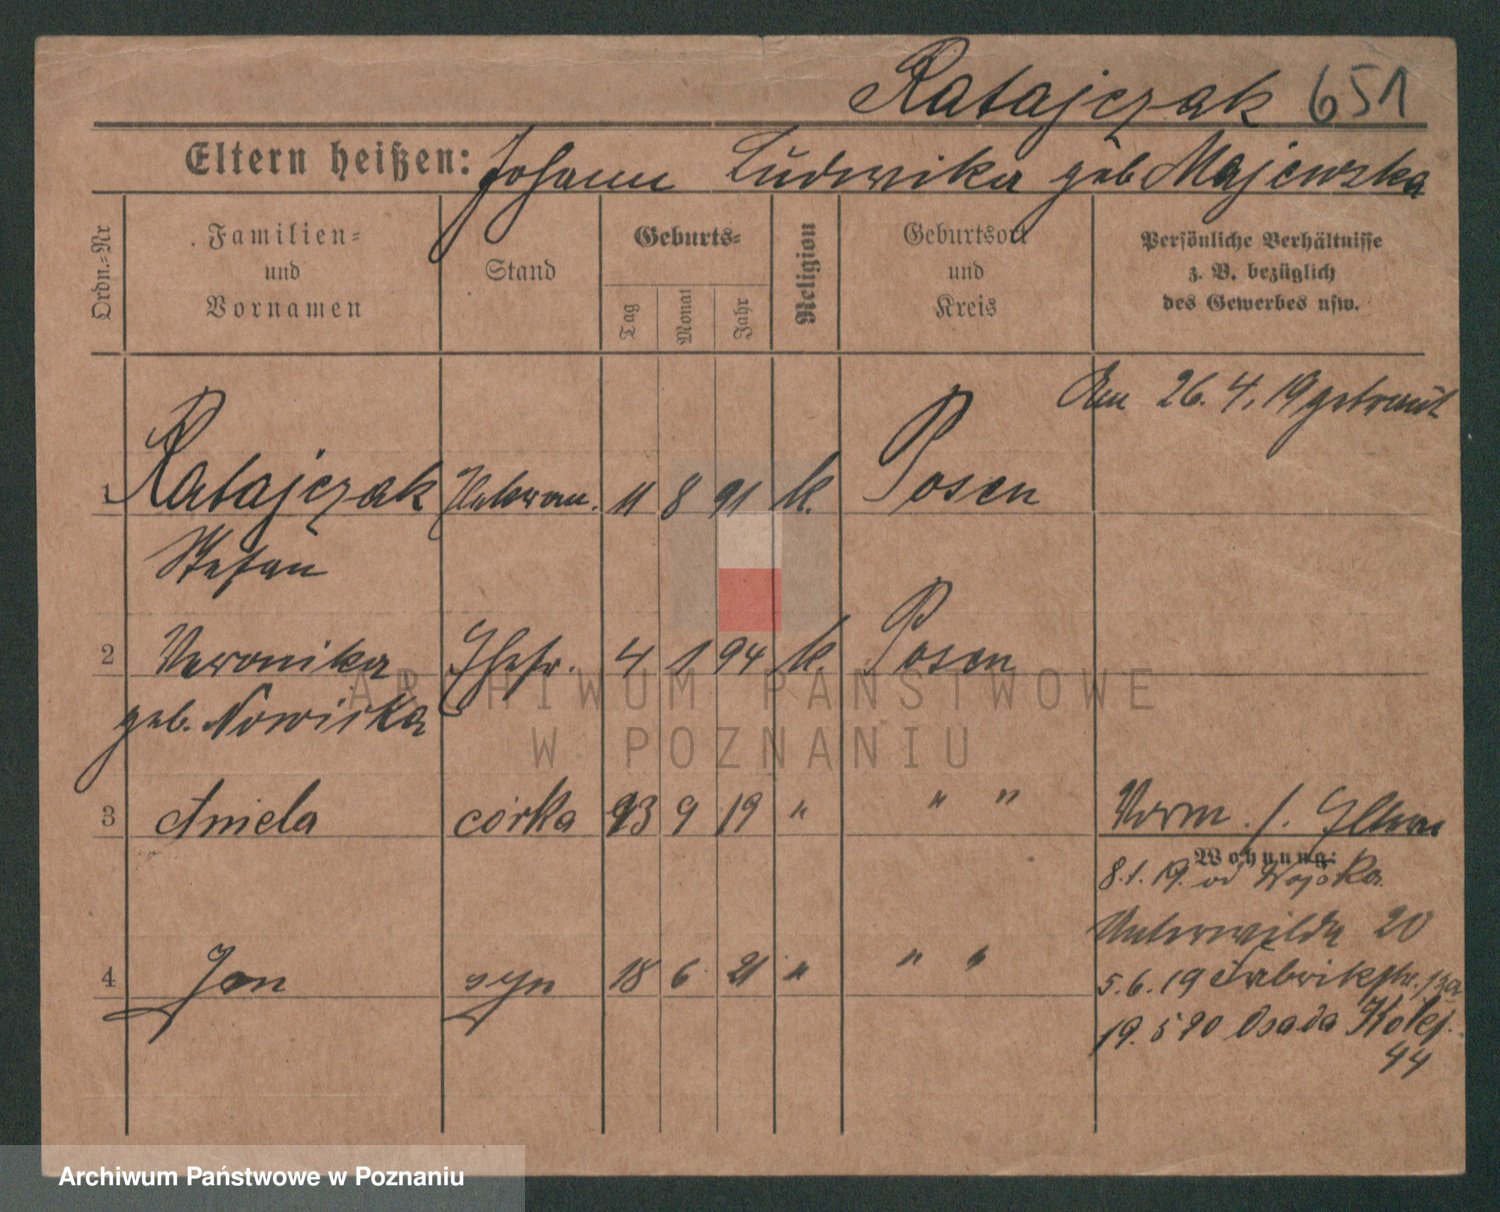 Ratajczak 651
Eltern heißen: Johann Ludwika geb Majewska
Ordn.=Nr
Familien=
und
Vornamen
Stand
Geburts=
Tag
Monat
Jahr
Religion
Geburtsort
und
Kreis
Persönliche Verhältnisse
z. B. bezüglich
des Gewerbes usw.
Am 26. 4. 19 getraut
1 Ratajczak 11 8 91 k. Posen
Stefan
2 Veronika Ehefr. 4 1 94 k. Posen
geb. Nowicka
3 Aniela córka 23 9 19 " " " Vorm. /. Eltern
Wohnung:
8.1.19. od Wojska
Unterwilda 20
4 Jan syn 18 6 21 " " "
5.6.19 Fabrikstr.
19. 5 20 Osada Kolej.
44
ARCHIWUM PAŃSTWOWE
W POZNANIU
Archiwum Państwowe w Poznaniu